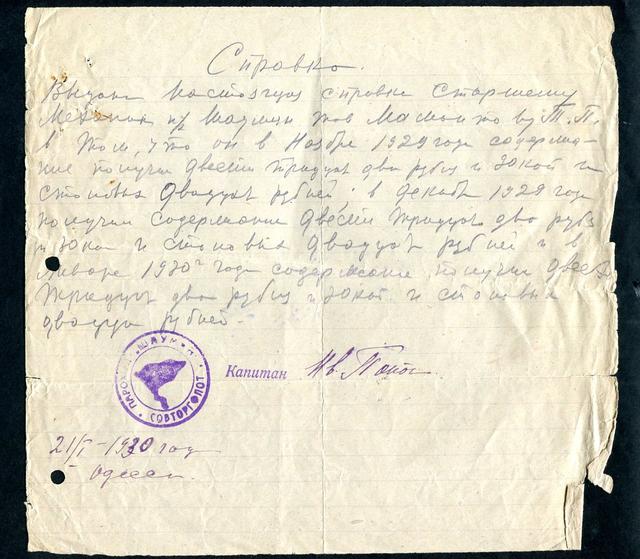 Справка.
Выдана настоящая справка Старшему
Механику п/х Шаумян тов
в том, что он в Ноябре 1929 года содержа-
ние получил двести тридцать два рубля и 30 коп и
столовых двадцать рублей. в декабре 1929 года
получил содержание двести тридцать два рубля
и 30 коп и столовых двадцать рублей и в
Январе 1930 г года содержание получил двести
тридцать два рубля и 30 коп и столовых
двадцать рублей.
ПАРОХОД ШАУМЯН
СОВТОРГФЛОТ
Капитан Ив. Попов
21/I-1930 год
Одесса.